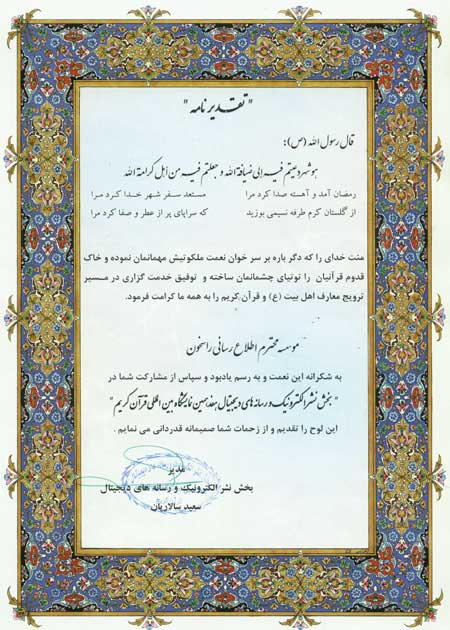 "تقدیر نامه"
قال رسول الله (ص):
هو شهر دعیتم فیه الی ضیافة الله و جعلتم فیه من اهل کرامة الله
رمضان آمد و آهسته صدا کرد مرا مستعد سفر شهر خدا کرد مرا
از گلستان کرم طرفه نسیمی بوزید که سراپای پر از عطر و صفا کرد مرا
منت خدای را که دگر باره بر سر خوان نعمت ملکوتیش مهمانمان نموده و خاک
قدوم قرآنیان را توتیای چشمانمان ساخته و توفیق خدمت گزاری در مسیر
ترویج معارف اهل بیت (ع) و قرآن کریم را به همه ما کرامت فرمود.
موسسه محترم اطلاع رسانی راسخون
به شکرانه این نعمت و به رسم یادبود و سپاس از مشارکت شما در
"بخش نشر الکترونیک و رسانه های دیجیتال هفدهمین نمایشگاه بین المللی قرآن کریم"
این لوح را تقدیم و از زحمات شما صمیمانه قدردانی می نمایم.
مدیر
بخش نشر الکترونیک و رسانه های دیجیتال
سعید سالاریان